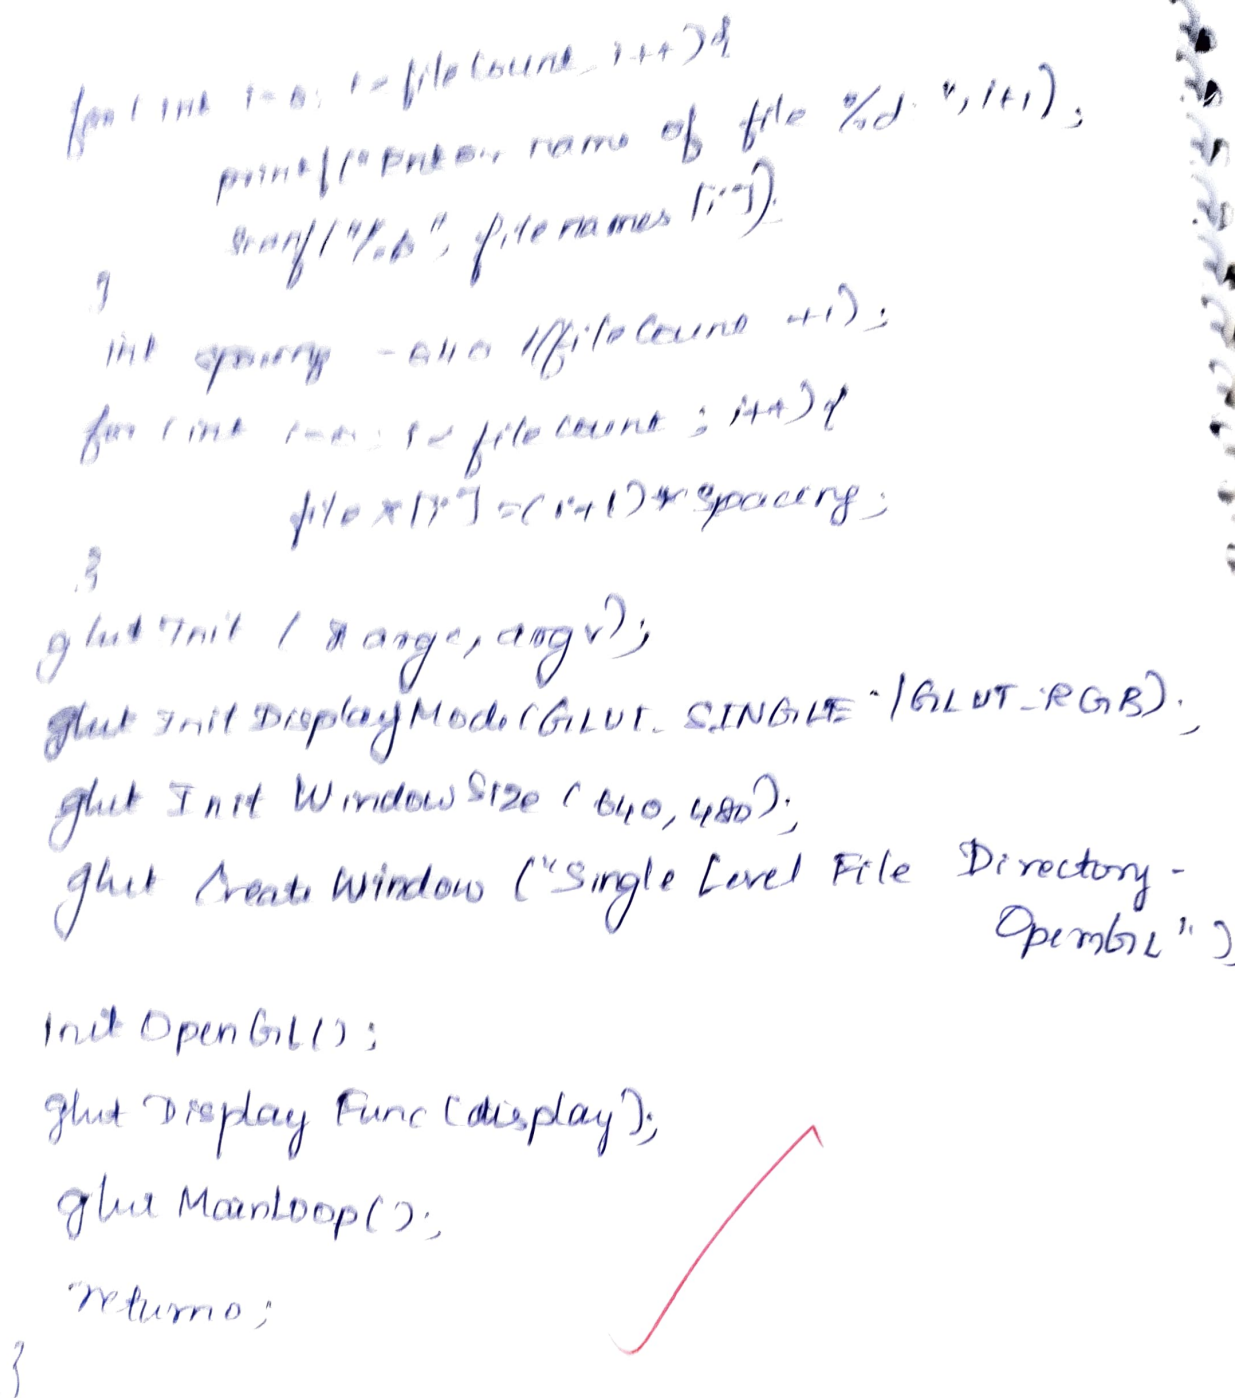 for(int i=0; i<fileCount; i++){
printf("Enter name of file %d: ", i+1);
scanf("%s", filenames[i]);
}
int spacing = 640 /(fileCount +1);
for(int i=0; i<fileCount ; i++){
filex[i] =(i+1)* spacing;
}
glutInit ( & argc, argv);
glut Init DisplayMode(GLUT_SINGLE | GLUT_RGB);
glut Init Window Size ( 640, 480);
glut Create Window ("Single Level File Directory -
OpenGL")
Init OpenGL();
glut Display Func (display);
glut MainLoop();
return 0;
}